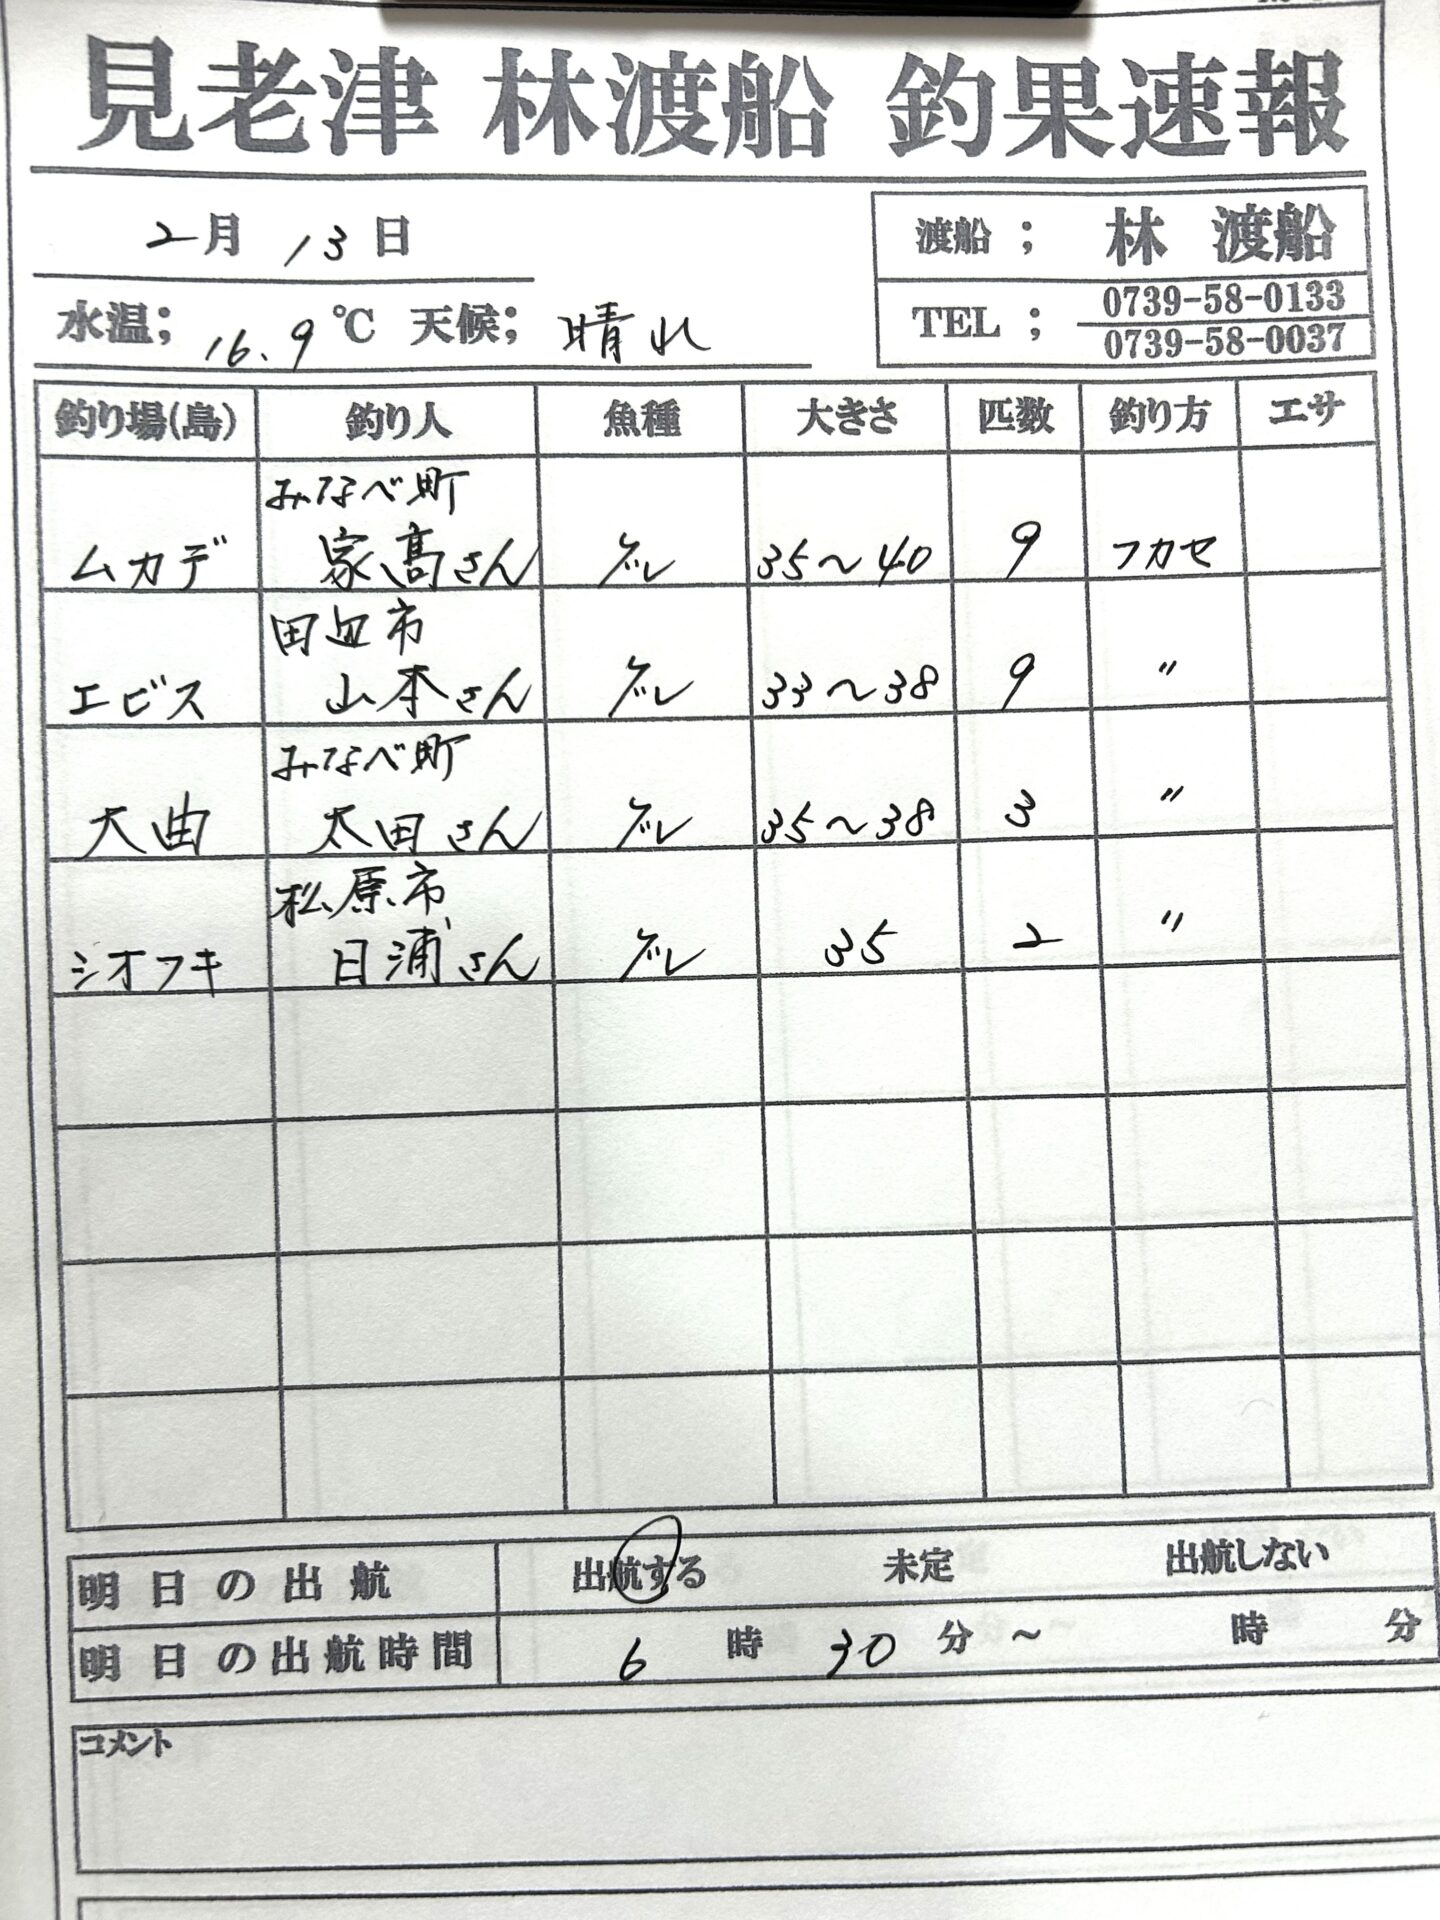 見老津 林渡船 釣果速報
2月 13日
渡船 ; 林 渡船
水温; 16.9 ℃ 天候; 晴れ
TEL ; 0739-58-0133
0739-58-0037
釣り場(島) 釣り人 魚種 大きさ 匹数 釣り方 エサ
みなべ町
ムカデ 家高さん グレ 35～40 9 フカセ
田辺市
エビス 山本さん グレ 33～38 9 〃
みなべ町
大曲 太田さん グレ 35～38 3 〃
松原市
シオフキ 日浦さん グレ 35 2 〃
明日の出航 出航する 未定 出航しない
明日の出航時間 6 時 30 分 ～ 時 分
コメント